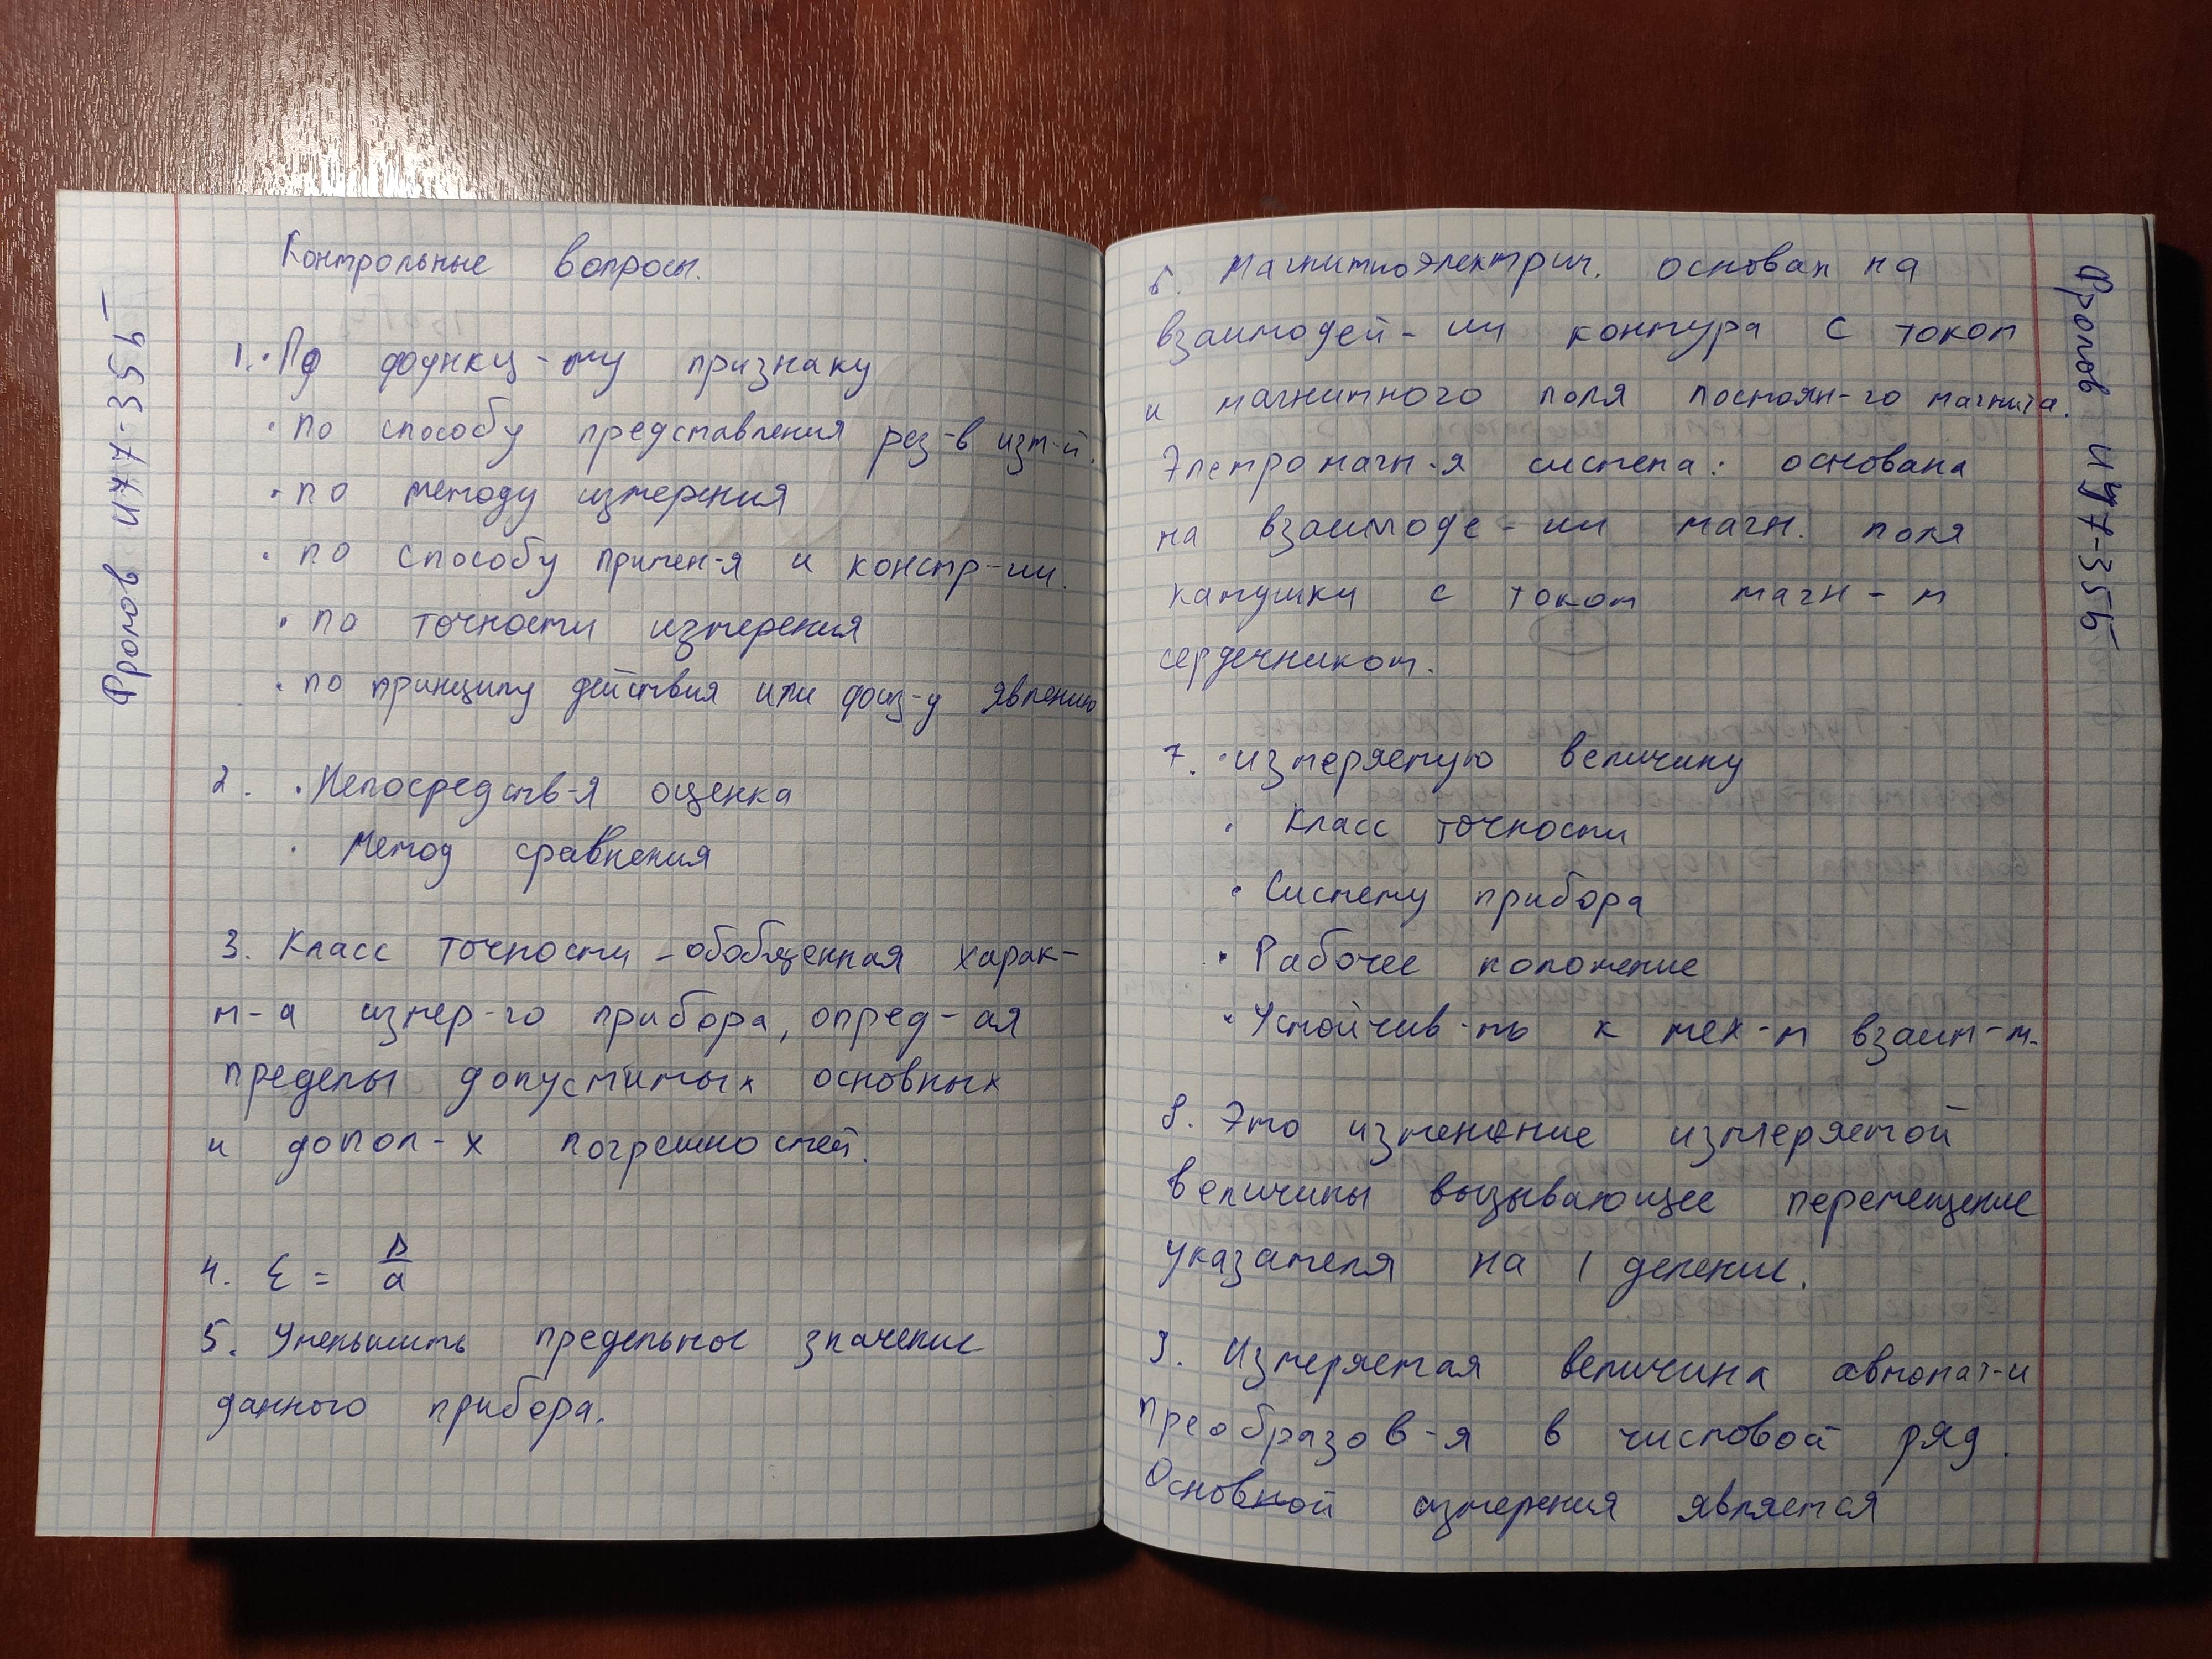 Фролов ИУ7-35Б
Контрольные вопросы.
1. · По функц-му признаку
· по способу представления рез-в изм-й.
· по методу измерения
· по способу примен-я и констр-ии.
· по точности измерения
· по принципу действия или физ-у явлению
2. · Непосредств-я оценка
· Метод сравнения
3. Класс точности - обобщенная харак-
т-а измер-го прибора, опред-ая
пределы допустимых основных
и допол-х погрешностей.
4. ε = D/a
5. Уменьшить предельное значение
данного прибора.
6. Магнитоэлектрич. основан на
взаимодей-ии контура с током
и магнитного поля постоян-го магнита.
Элетромагн-я система: основана
на взаимоде-ии магн. поля
катушки с током магн-м
сердечником.
7. · измеряемую величину
· Класс точности
· Систему прибора
· Рабочее положение
· Устойчив-ть к мех-м взаим-м.
8. Это изменение измеряемой
величины вызывающее перемещение
указателя на 1 деление.
9. Измеряемая величина автомат-и
преобразов-я в числовой ряд.
Основной измерения является
Фролов ИУ7-35Б